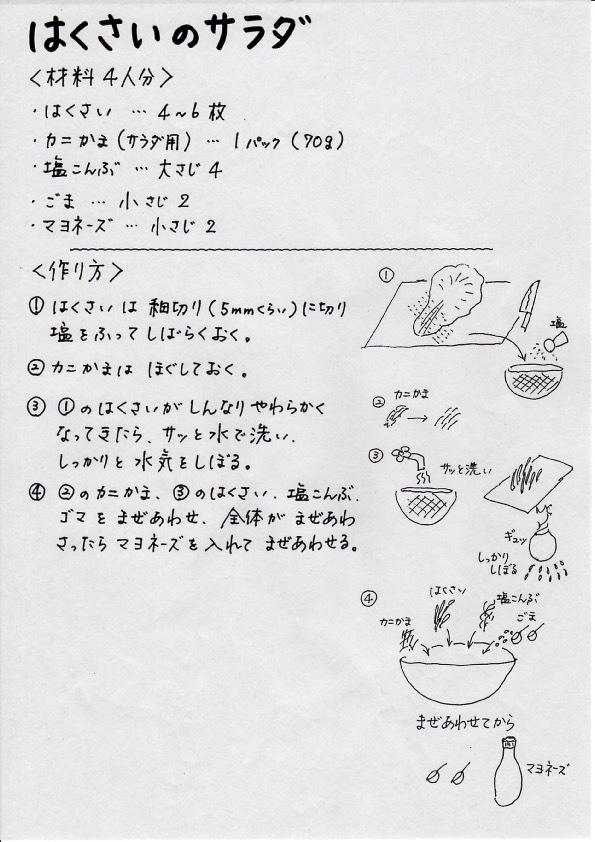 はくさいのサラダ
〈材料 4人分〉
・はくさい … 4~6枚
・カニかま(サラダ用) … 1パック(70g)
・塩こんぶ … 大さじ4
・ごま … 小さじ2
・マヨネーズ … 小さじ2
〈作り方〉
① はくさいは 細切り(5mmくらい)に切り
塩をふって しばらくおく。
② カニかまは ほぐしておく。
③ ①のはくさいが しんなり やわらかく
なってきたら、サッと水で洗い、
しっかりと 水気をしぼる。
④ ②のカニかま、③のはくさい、塩こんぶ、
ゴマを まぜあわせ、全体が まぜあわ
さったら マヨネーズを入れて まぜあわせる。
①
塩
②
カニかま
③
サッと洗い
ギュッ
しっかり
しぼる
④
カニかま
はくさい
塩こんぶ
ごま
まぜあわせてから
マヨネーズ